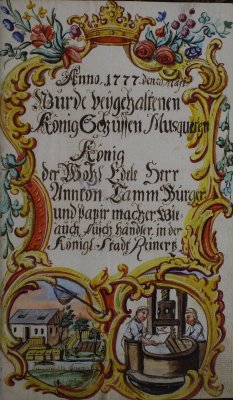 Anno. 1777. den
Wurde beÿgehaltenen
König Schüssen Musqueten
König
der Wohl Edele Herr
Annton Tamm Bürger
und papir macher Wie
auch händler. in der
Königl. Stadt Reinertz